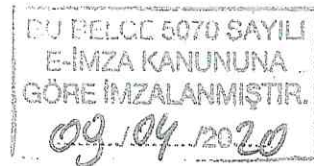 BU BELGE 5070 SAYILI
E-İMZA KANUNUNA
GÖRE İMZALANMIŞTIR.
09/04/2020